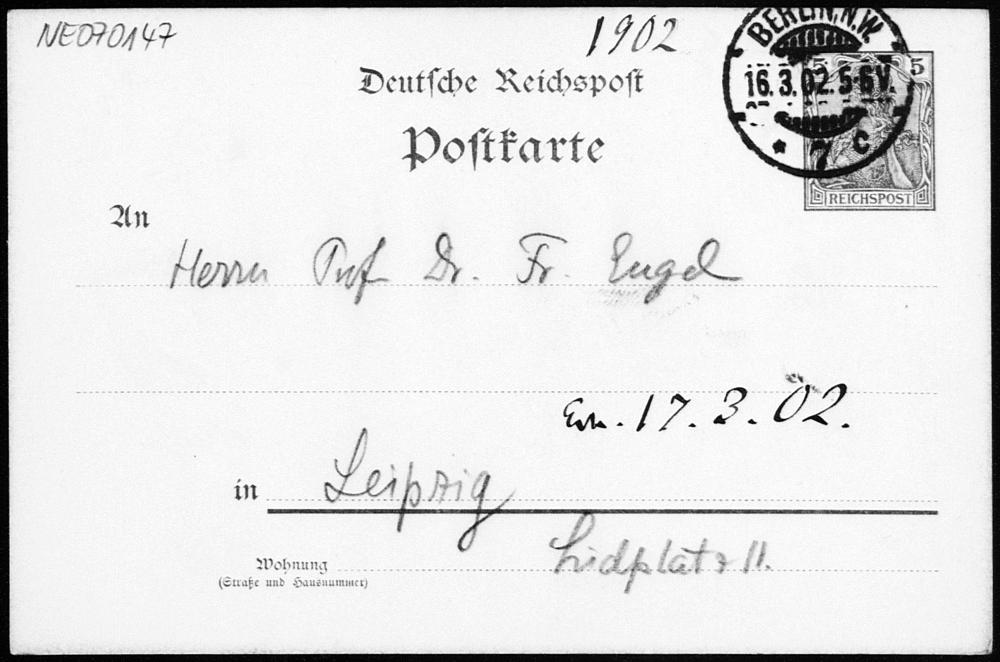 NE070147
1902
BERLIN, N.W.
16.3.02. 5-6V.
* 7 c
5 5
REICHSPOST
Deutsche Reichspost
Postkarte
An
Herrn Prof Dr. Fr. Engel
17.3.02.
in Leipzig
Wohnung
(Straße und Hausnummer)